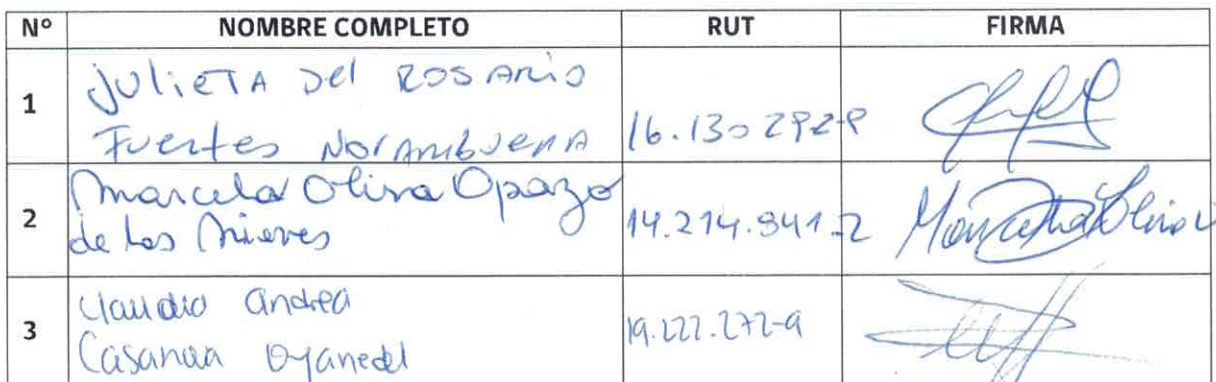 Nº NOMBRE COMPLETO RUT FIRMA
1 Julieta Del Rosario
Fuertes Norambuena 16.130 292-
2 Marcela Oliva Opazo
de Las Nieves 14.214.941-2 Marcela Oliva
3 Claudia Andrea
Casanova Oyanedel 19.222.272-9